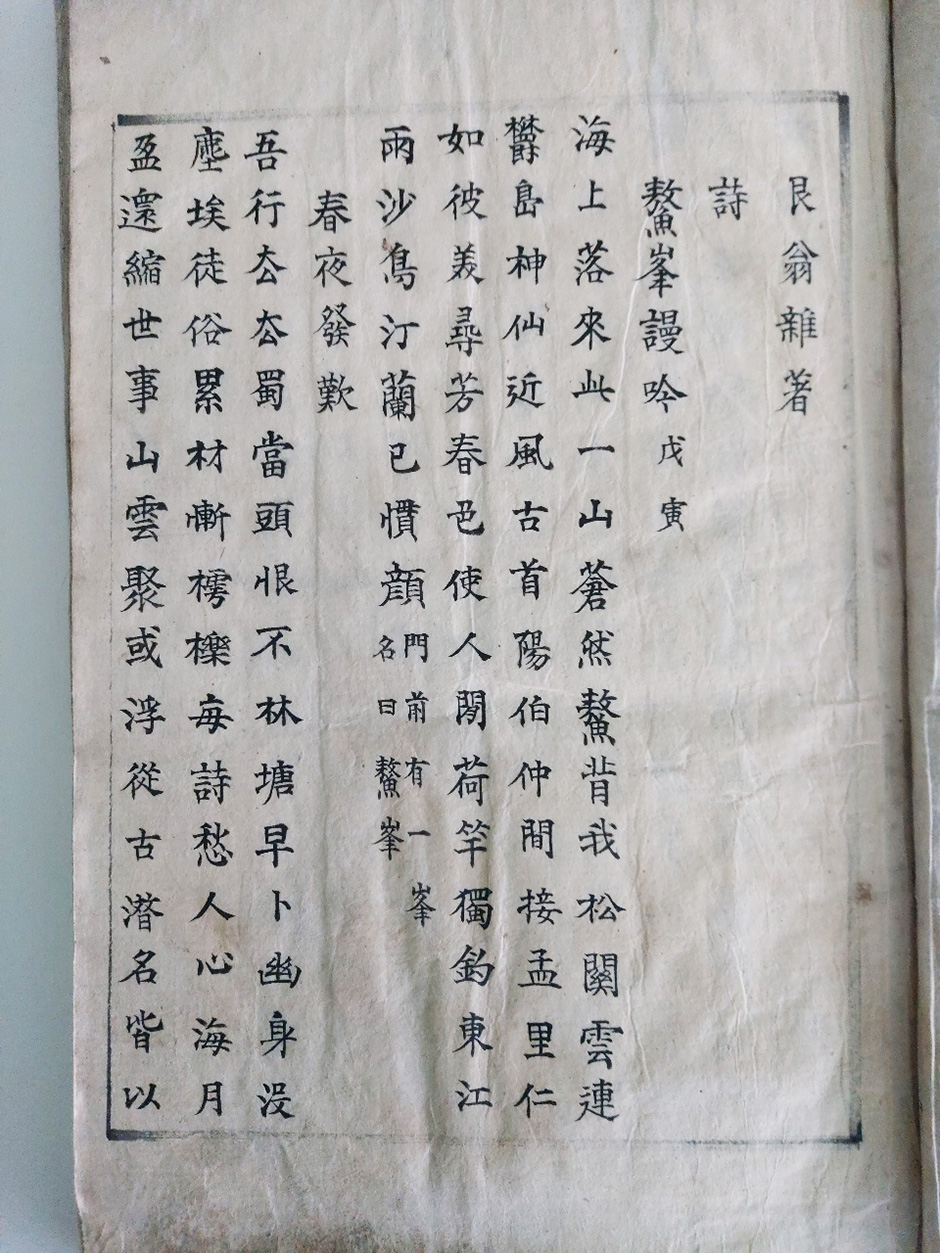 艮翁雜著
詩
鰲峯謾吟戊寅
海上落來此一山蒼然鰲背我松關雲連
欝島神仙近風古首陽伯仲間接孟里仁
如彼美尋芳春色使人閒荷竿獨釣東江
雨沙鳥汀蘭已慣顔門前有一峯名曰鰲峯
春夜發歎
吾行厺厺蜀當頭恨不林塘早卜幽身沒
塵埃徒俗累材慚樗櫟每詩愁人心海月
盈還縮世事山雲聚或浮從古潛名皆以